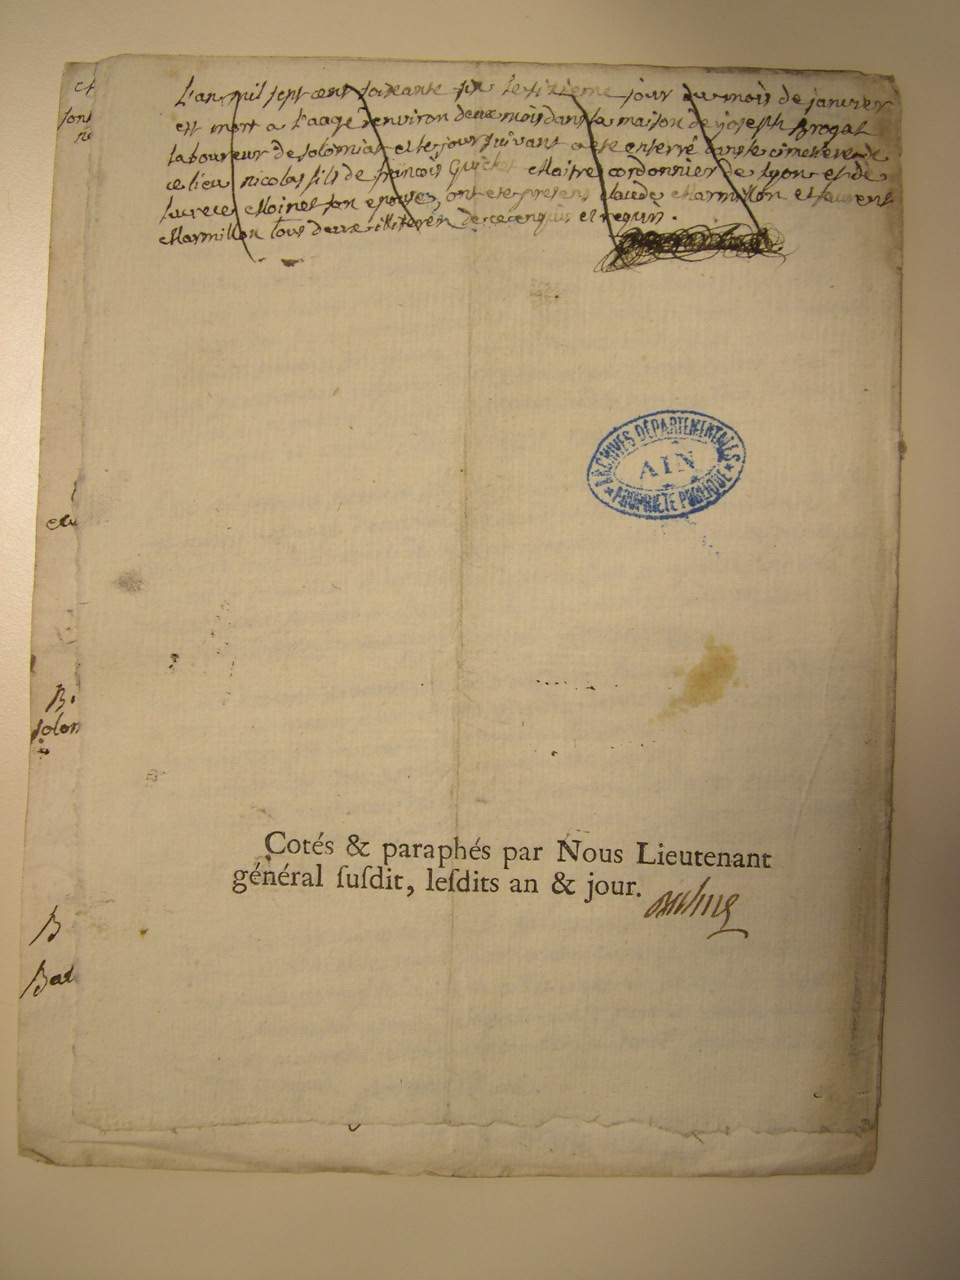 L'an mil sept cent soixante six le sixieme jour du mois de janvier
est mort a l'aage d'environ deux mois dans la maison de joseph Brogat
laboureur de solomiat et le jour suivant a eté enterré dans le cimetiere de
ce lieu nicolas fils de francois Guichet Maitre cordonnier de Lyon et de
Moinet son epouse, ont eté presens claude Marmillon et laurent
Marmillon tous deux illiteren de ce enquis et requis.
ARCHIVES DÉPARTEMENTALES
AIN
PROPRIÉTÉ PUBLIQUE
Cotés & paraphés par Nous Lieutenant
général ſuſdit, leſdits an & jour.
et
sont
B.
solom
B
Bal